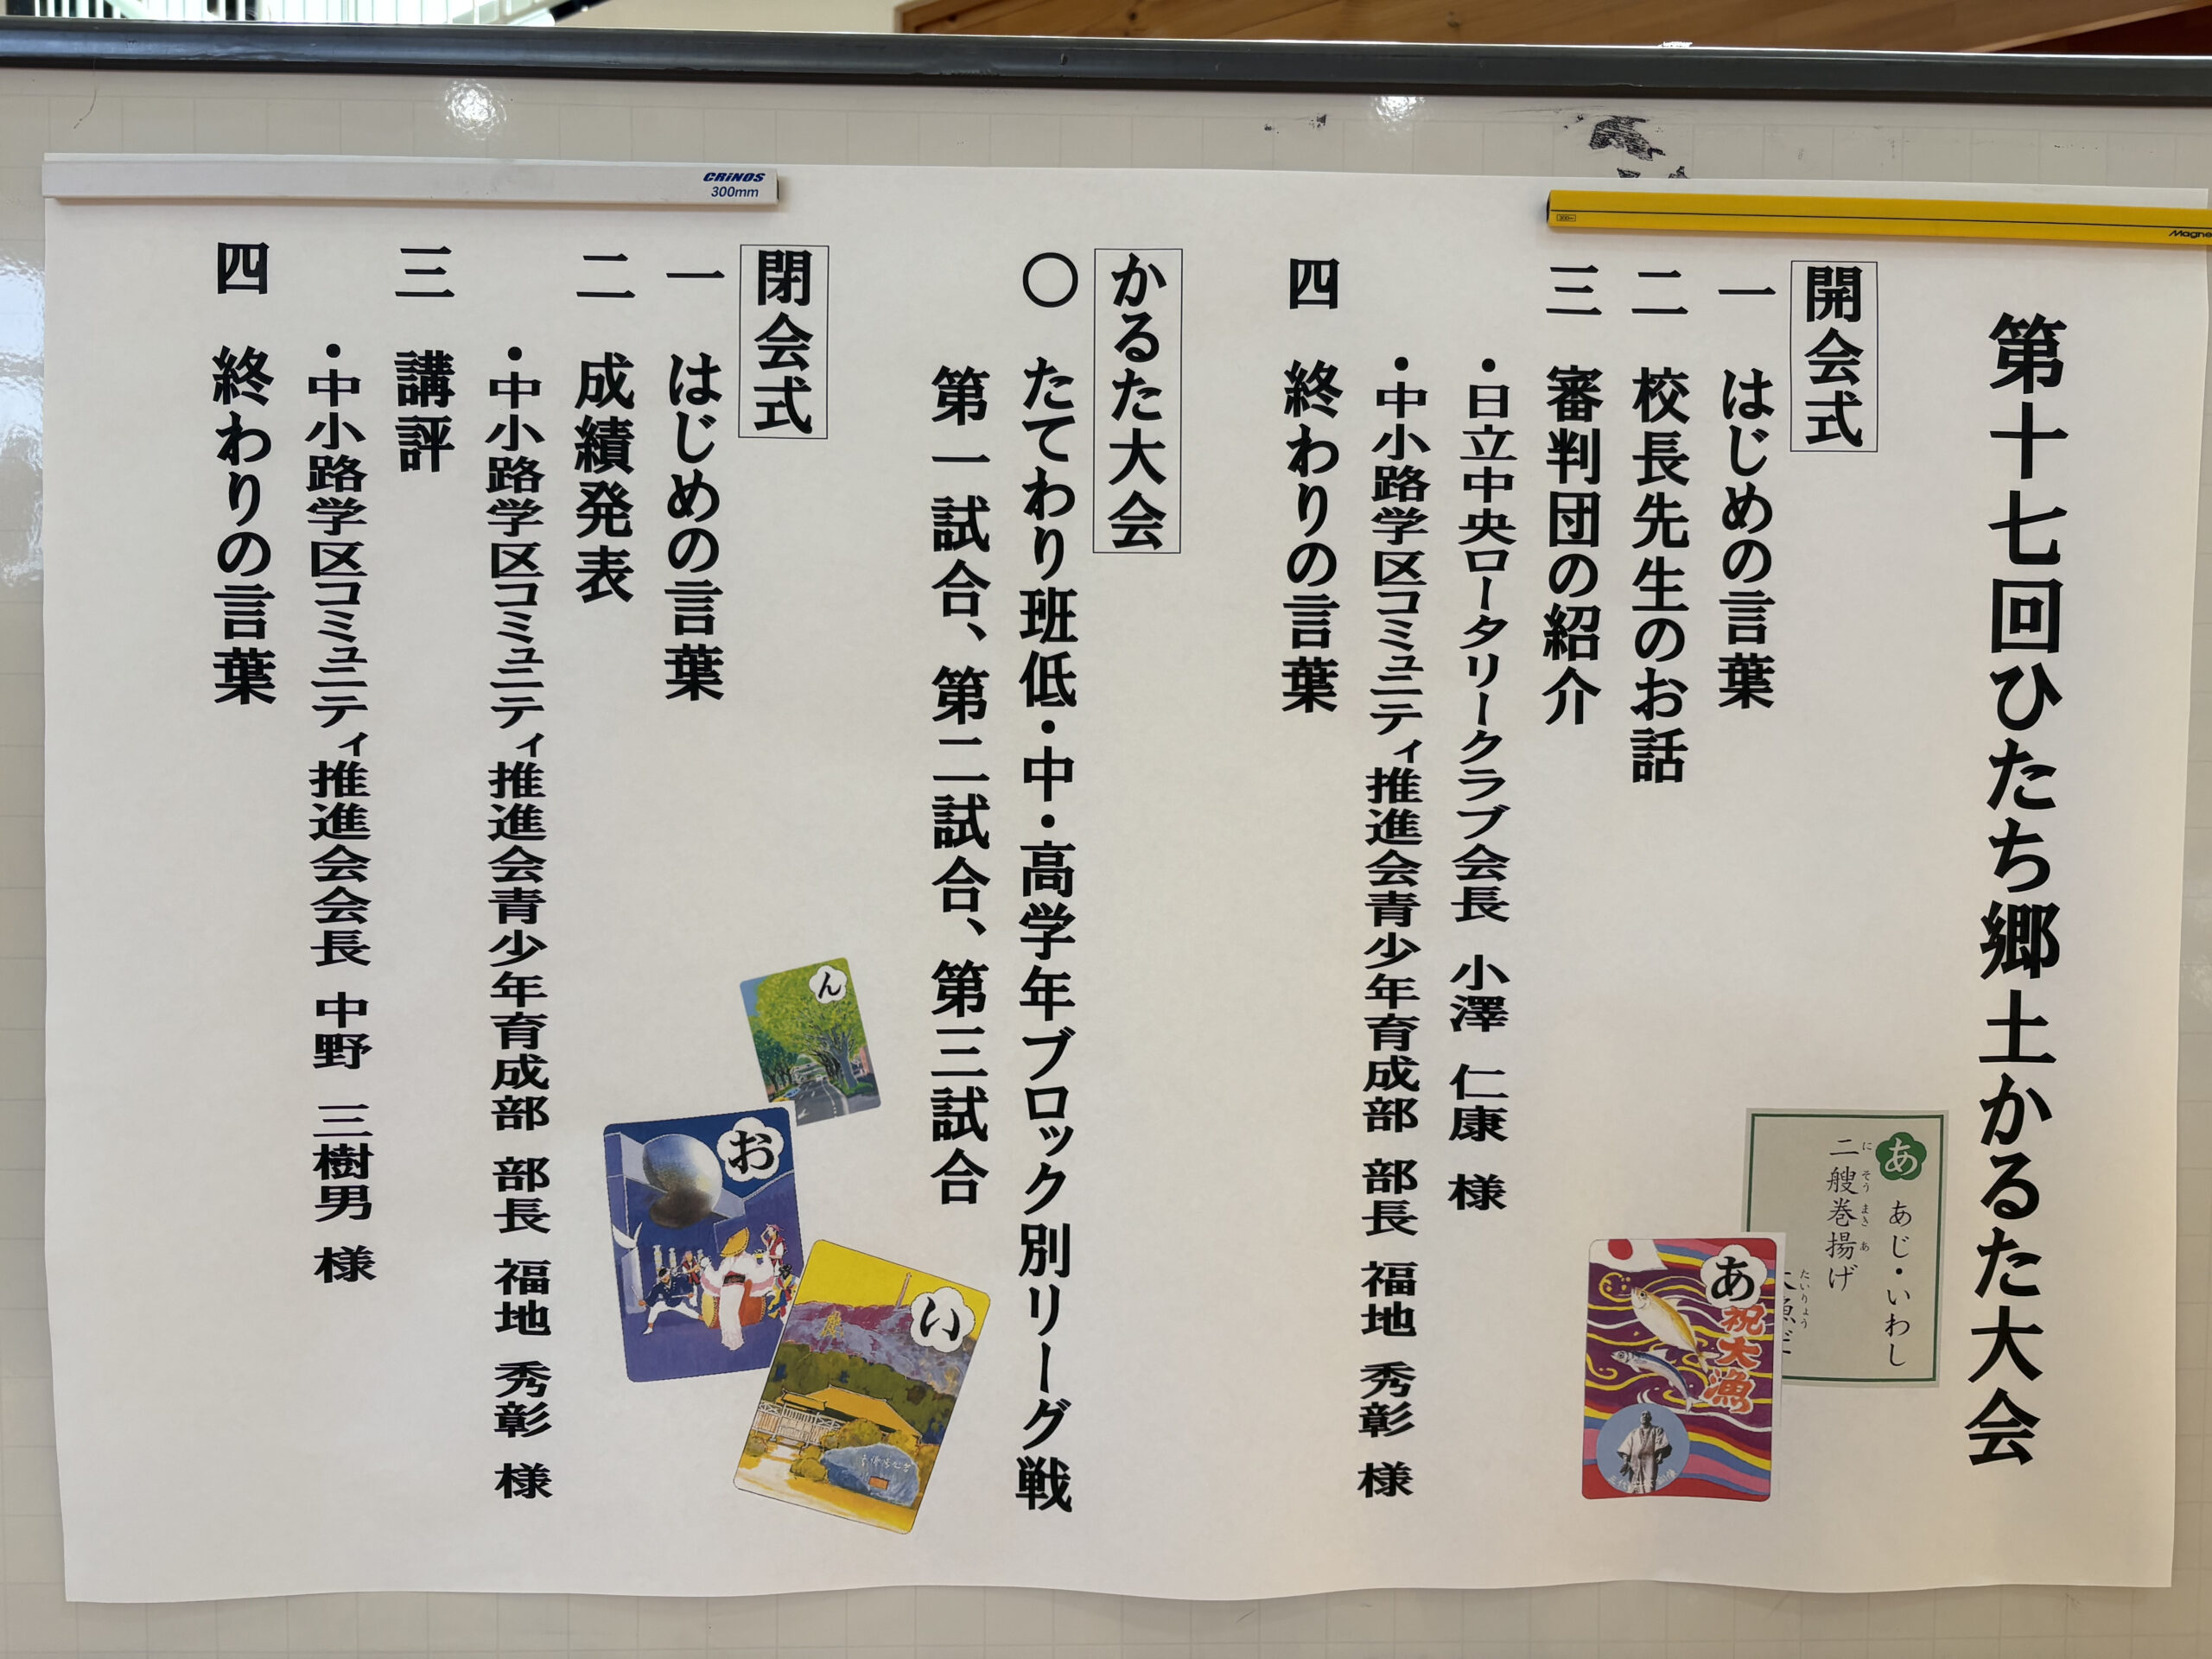 第十七回ひたち郷土かるた大会
開会式
一 はじめの言葉
二 校長先生のお話
三 審判団の紹介
・日立中央ロータリークラブ会長 小澤 仁康 様
・中小路学区コミュニティ推進会青少年育成部 部長 福地 秀彰 様
四 終わりの言葉
かるた大会
〇 たてわり班低・中・高学年ブロック別リーグ戦
第一試合、第二試合、第三試合
閉会式
一 はじめの言葉
二 成績発表
・中小路学区コミュニティ推進会青少年育成部 部長 福地 秀彰 様
三 講評
・中小路学区コミュニティ推進会会長 中野 三樹男 様
四 終わりの言葉
あ
あじ・いわし
二艘巻揚げ
に そう まき あ
たいりょう
あ
祝大漁
ん
お
い
CRiNOS
300mm